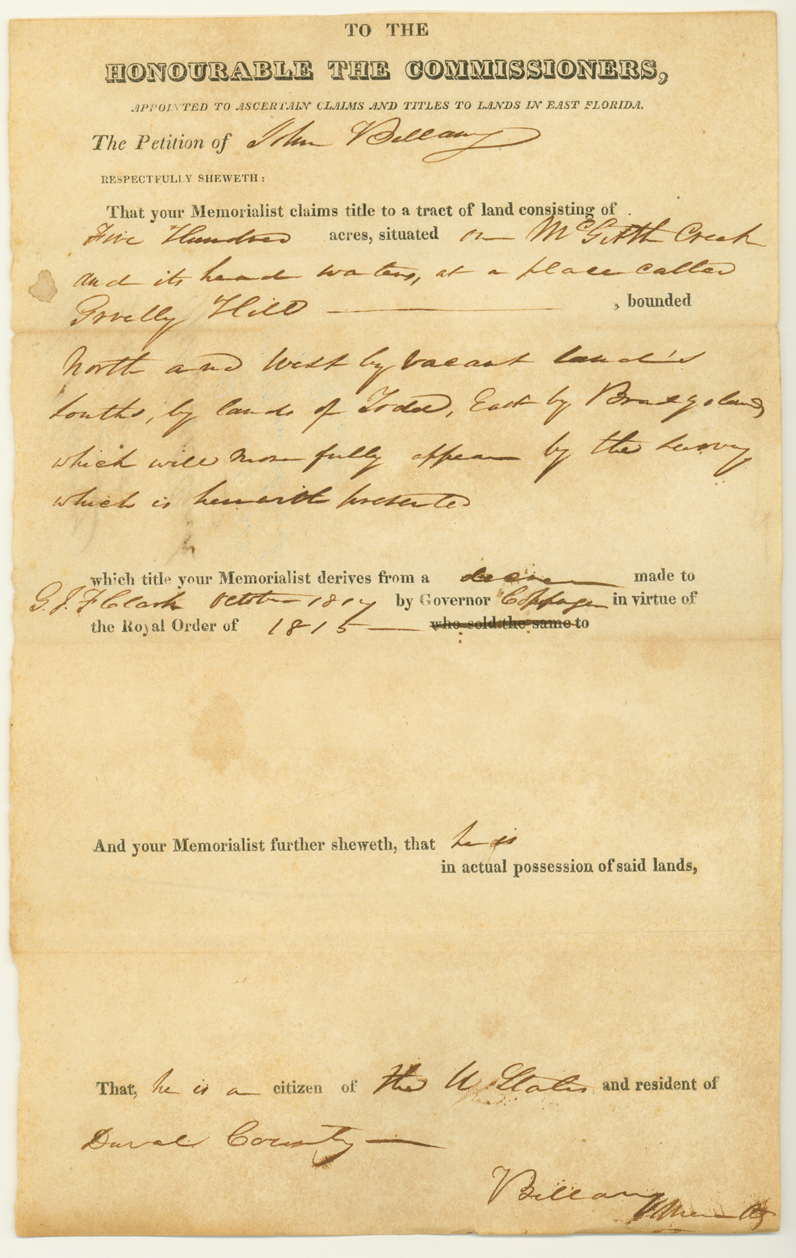 TO THE
HONOURABLE THE COMMISSIONERS,
APPOINTED TO ASCERTAIN CLAIMS AND TITLES TO LANDS IN EAST FLORIDA.
The Petition of John Bellamy
RESPECTFULLY SHEWETH:
That your Memorialist claims title to a tract of land consisting of
Five Hundred acres, situated on McGirth Creek
and its head waters, at a place called
Hill , bounded
North and West by vacant land's
South, by lands of Todd, East by
which will more fully appear by the survey
which is herewith presented
which title your Memorialist derives from a made to
G. J. F Clark October 1817 by Governor Coppinger in virtue of
the Royal Order of 1815 who sold the same to
And your Memorialist further sheweth, that he is
in actual possession of said lands,
That, he is a citizen of the U States and resident of
Duval County
Bellamy